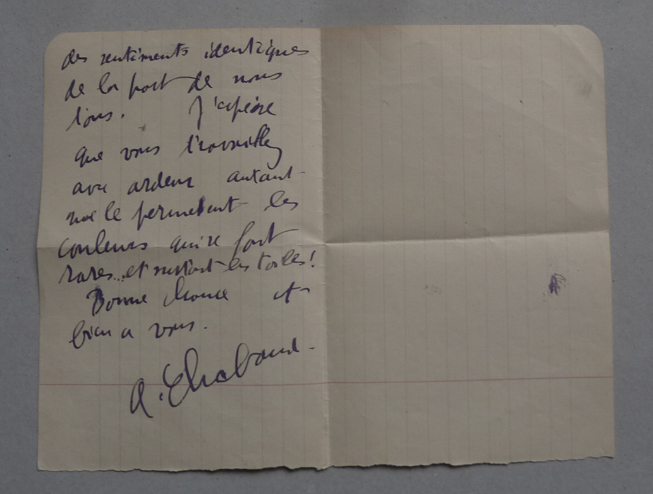 des sentiments identiques
de la part de nous
tous. J'espère
que vous travaillez
avec ardeur autant
que le permettent les
couleurs qui se font
rares.. et surtout les toiles!
Bonne chance et
bien a vous.
A. Chabaud.